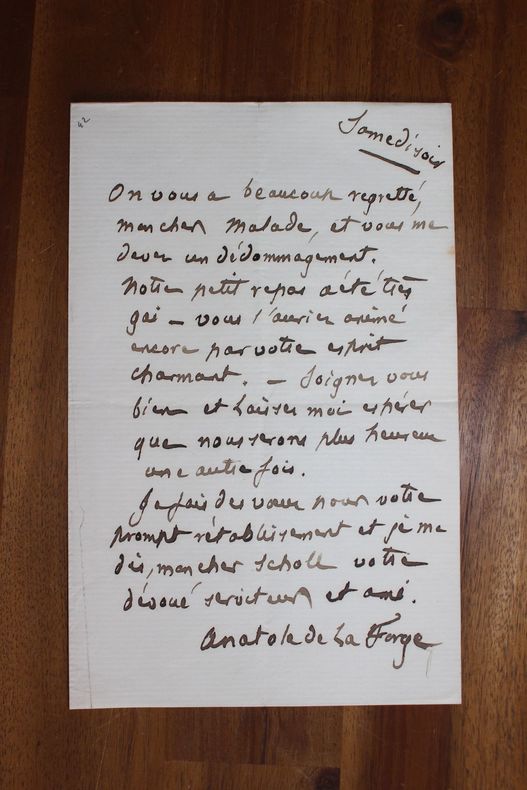 42
Samedi soir
On vous a beaucoup regretté,
mon cher malade, et vous me
devez un dédommagement.
Notre petit repas a été très
gai – vous l'auriez animé
encore par votre esprit
charmant. – Soignez vous
bien et laissez moi espérer
que nous serons plus heureux
une autre fois.
Je fais des vœux pour votre
prompt rétablissement et je me
dis, mon cher Scholl votre
dévoué serviteur et ami.
Anatole de La Forge